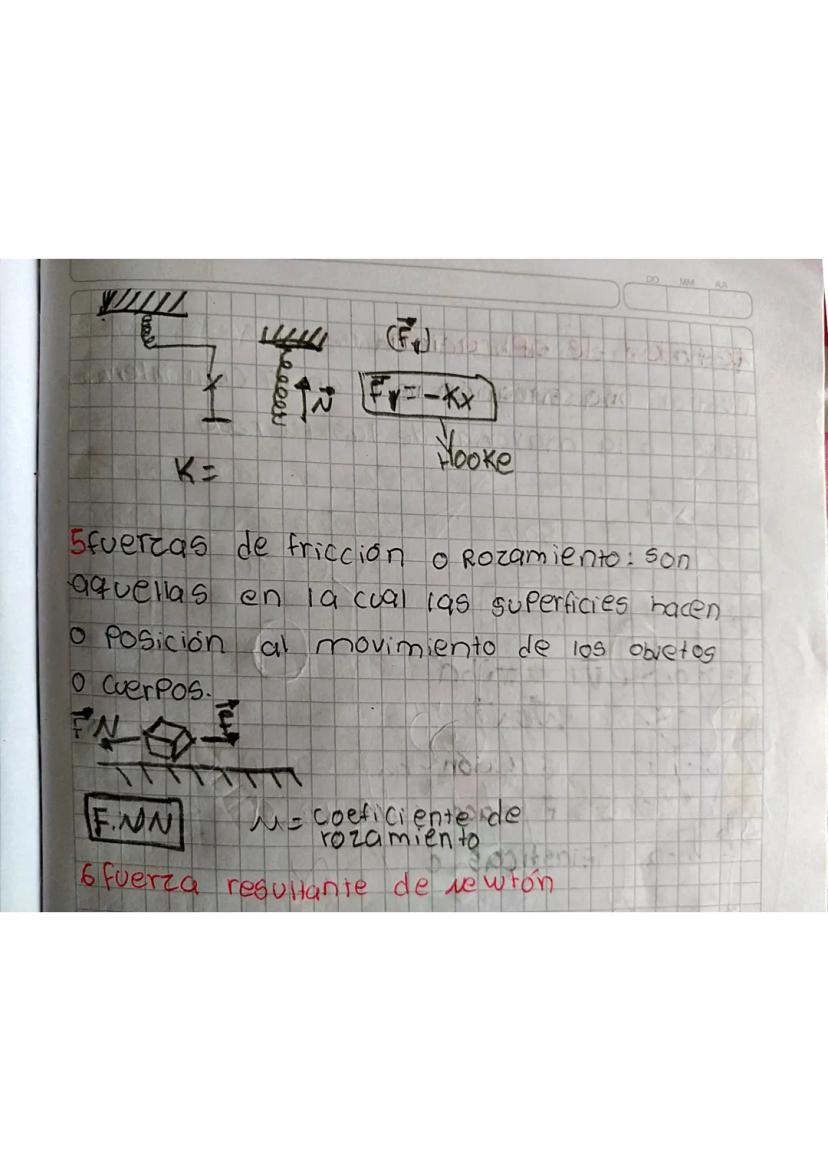 DD MM AA
(F⃗r)
N⃗
F⃗r = -Kx
Hooke
K =
5 fuerzas de fricción o Rozamiento: son
aquellas en la cual las superficies hacen
o posición al movimiento de los objetos
o cuerpos.
F⃗N
F.NN
μ = coeficiente de
rozamiento
6 fuerza resultante de newtón